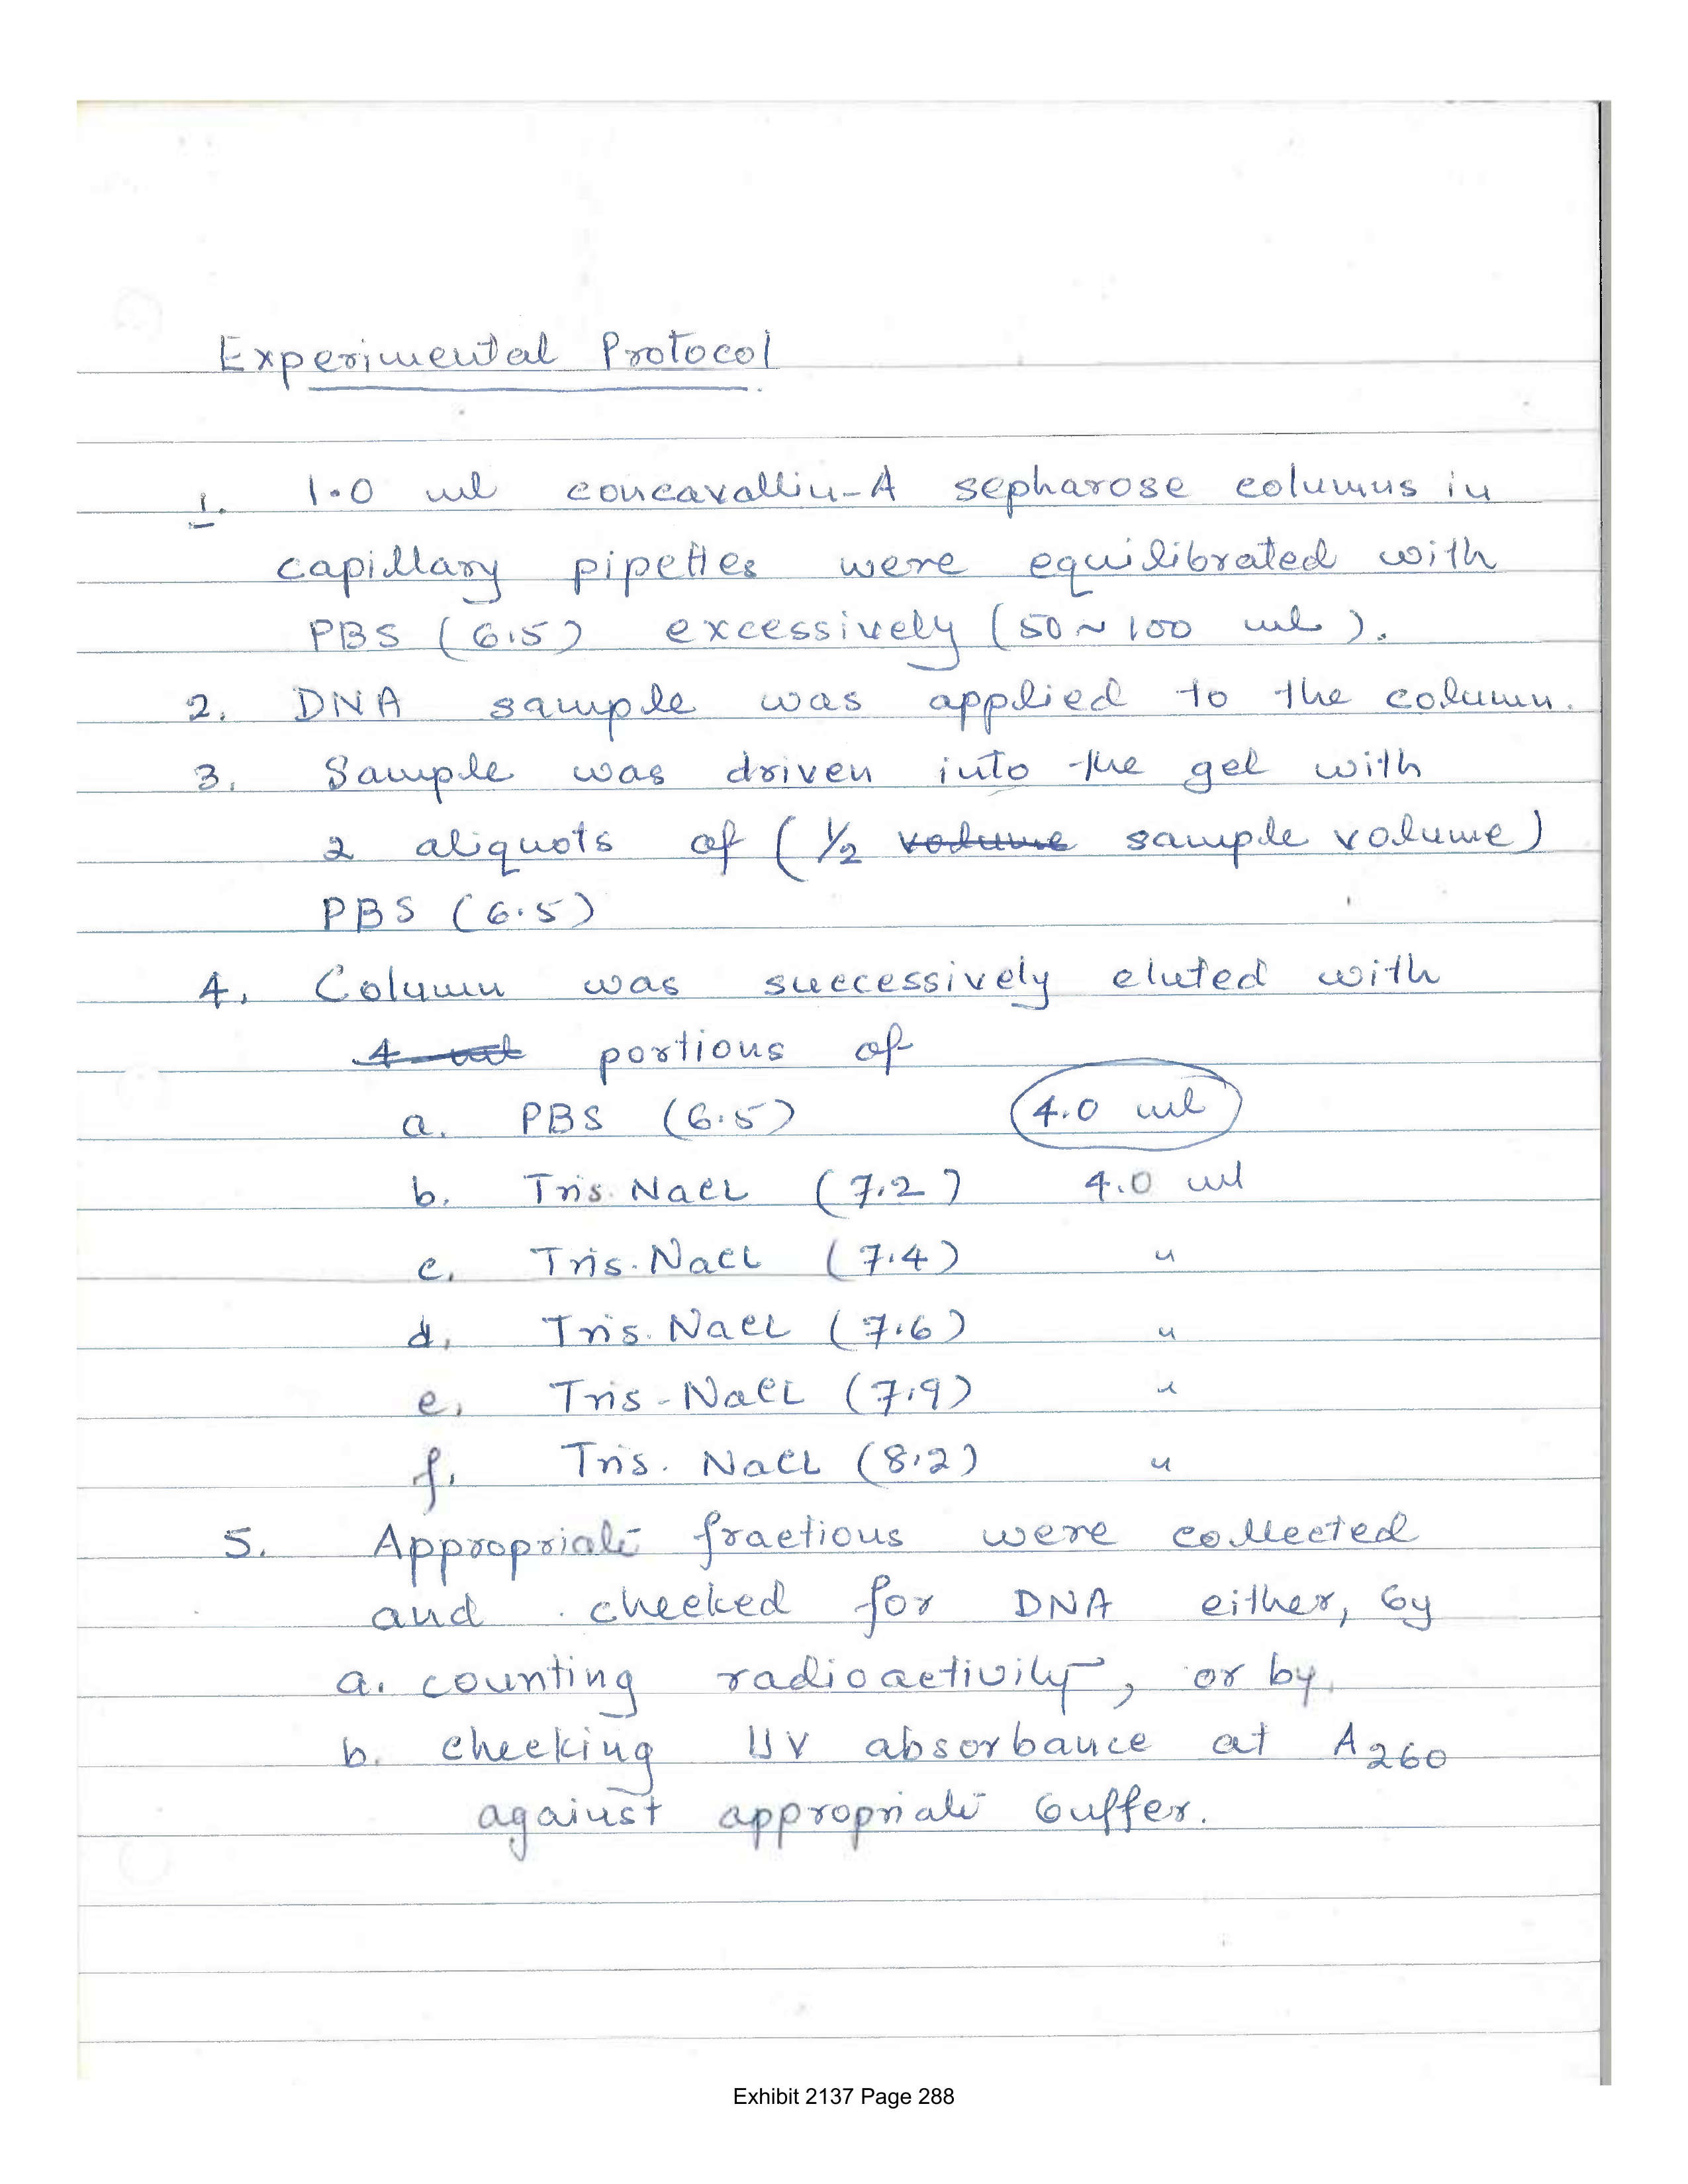 Experimental Protocol
1. 1.0 ml concavallin-A sepharose columns in
capillary pipettes were equilibrated with
PBS (6.5) excessively (50 ~ 100 ml).
2. DNA sample was applied to the column.
3. Sample was driven into the gel with
2 aliquots of (1/2 volume sample volume)
PBS (6.5)
4. Column was successively eluted with
4 ml portions of
a. PBS (6.5) 4.0 ml
b. Tris. NaCL (7.2) 4.0 ml
c. Tris. NaCL (7.4) "
d. Tris. NaCL (7.6) "
e. Tris - NaCL (7.9) "
f. Tris. NaCL (8.2) "
5. Appropriate fractions were collected
and checked for DNA either, by
a. counting radioactivity, or by
b. checking UV absorbance at A260
against appropriate buffer.
Exhibit 2137 Page 288